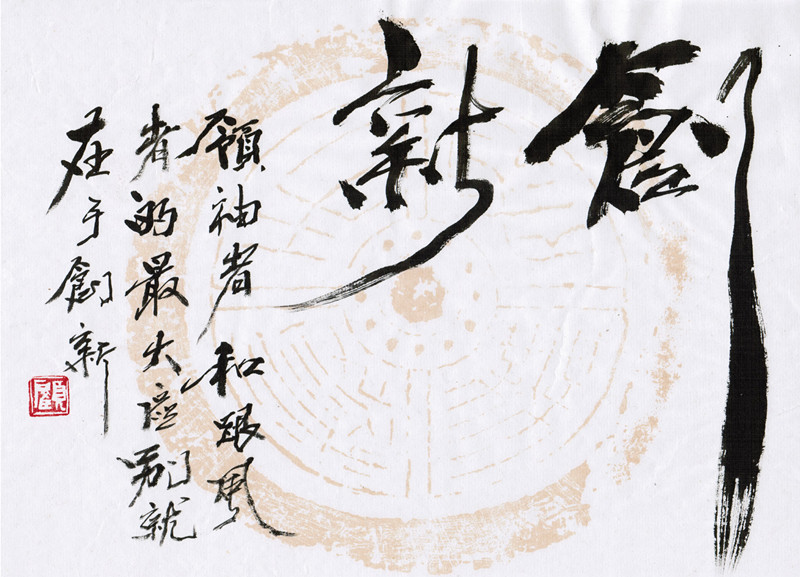 創新
領袖者和跟風
者的最大區別就
在于創新
顧